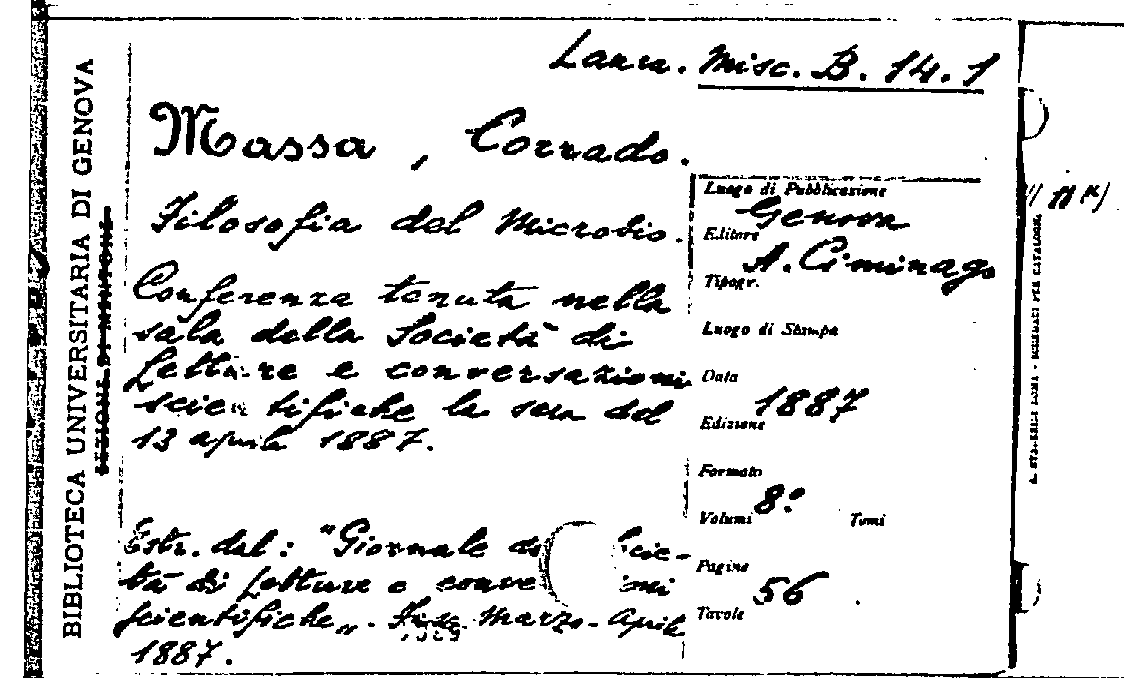 Laura. Misc. B. 14.1
Massa, Corrado.
Filosofia del Microbio.
Conferenza tenuta nella
sala della Società di
Letture e conversazioni
scientifiche la sera del
13 aprile 1887.
Estr. dal: "Giornale Socie-
tà di Letture e conve ioni
scientifiche„. Fasc. Marzo-Aprile
1887.
Luogo di Pubblicazione
Genova
Editore
A. Ciminago
Tipogr.
Luogo di Stampa
Data
1887
Edizione
Formato
8°
Volumi Tomi
Pagine
56
Tavole
BIBLIOTECA UNIVERSITARIA DI GENOVA